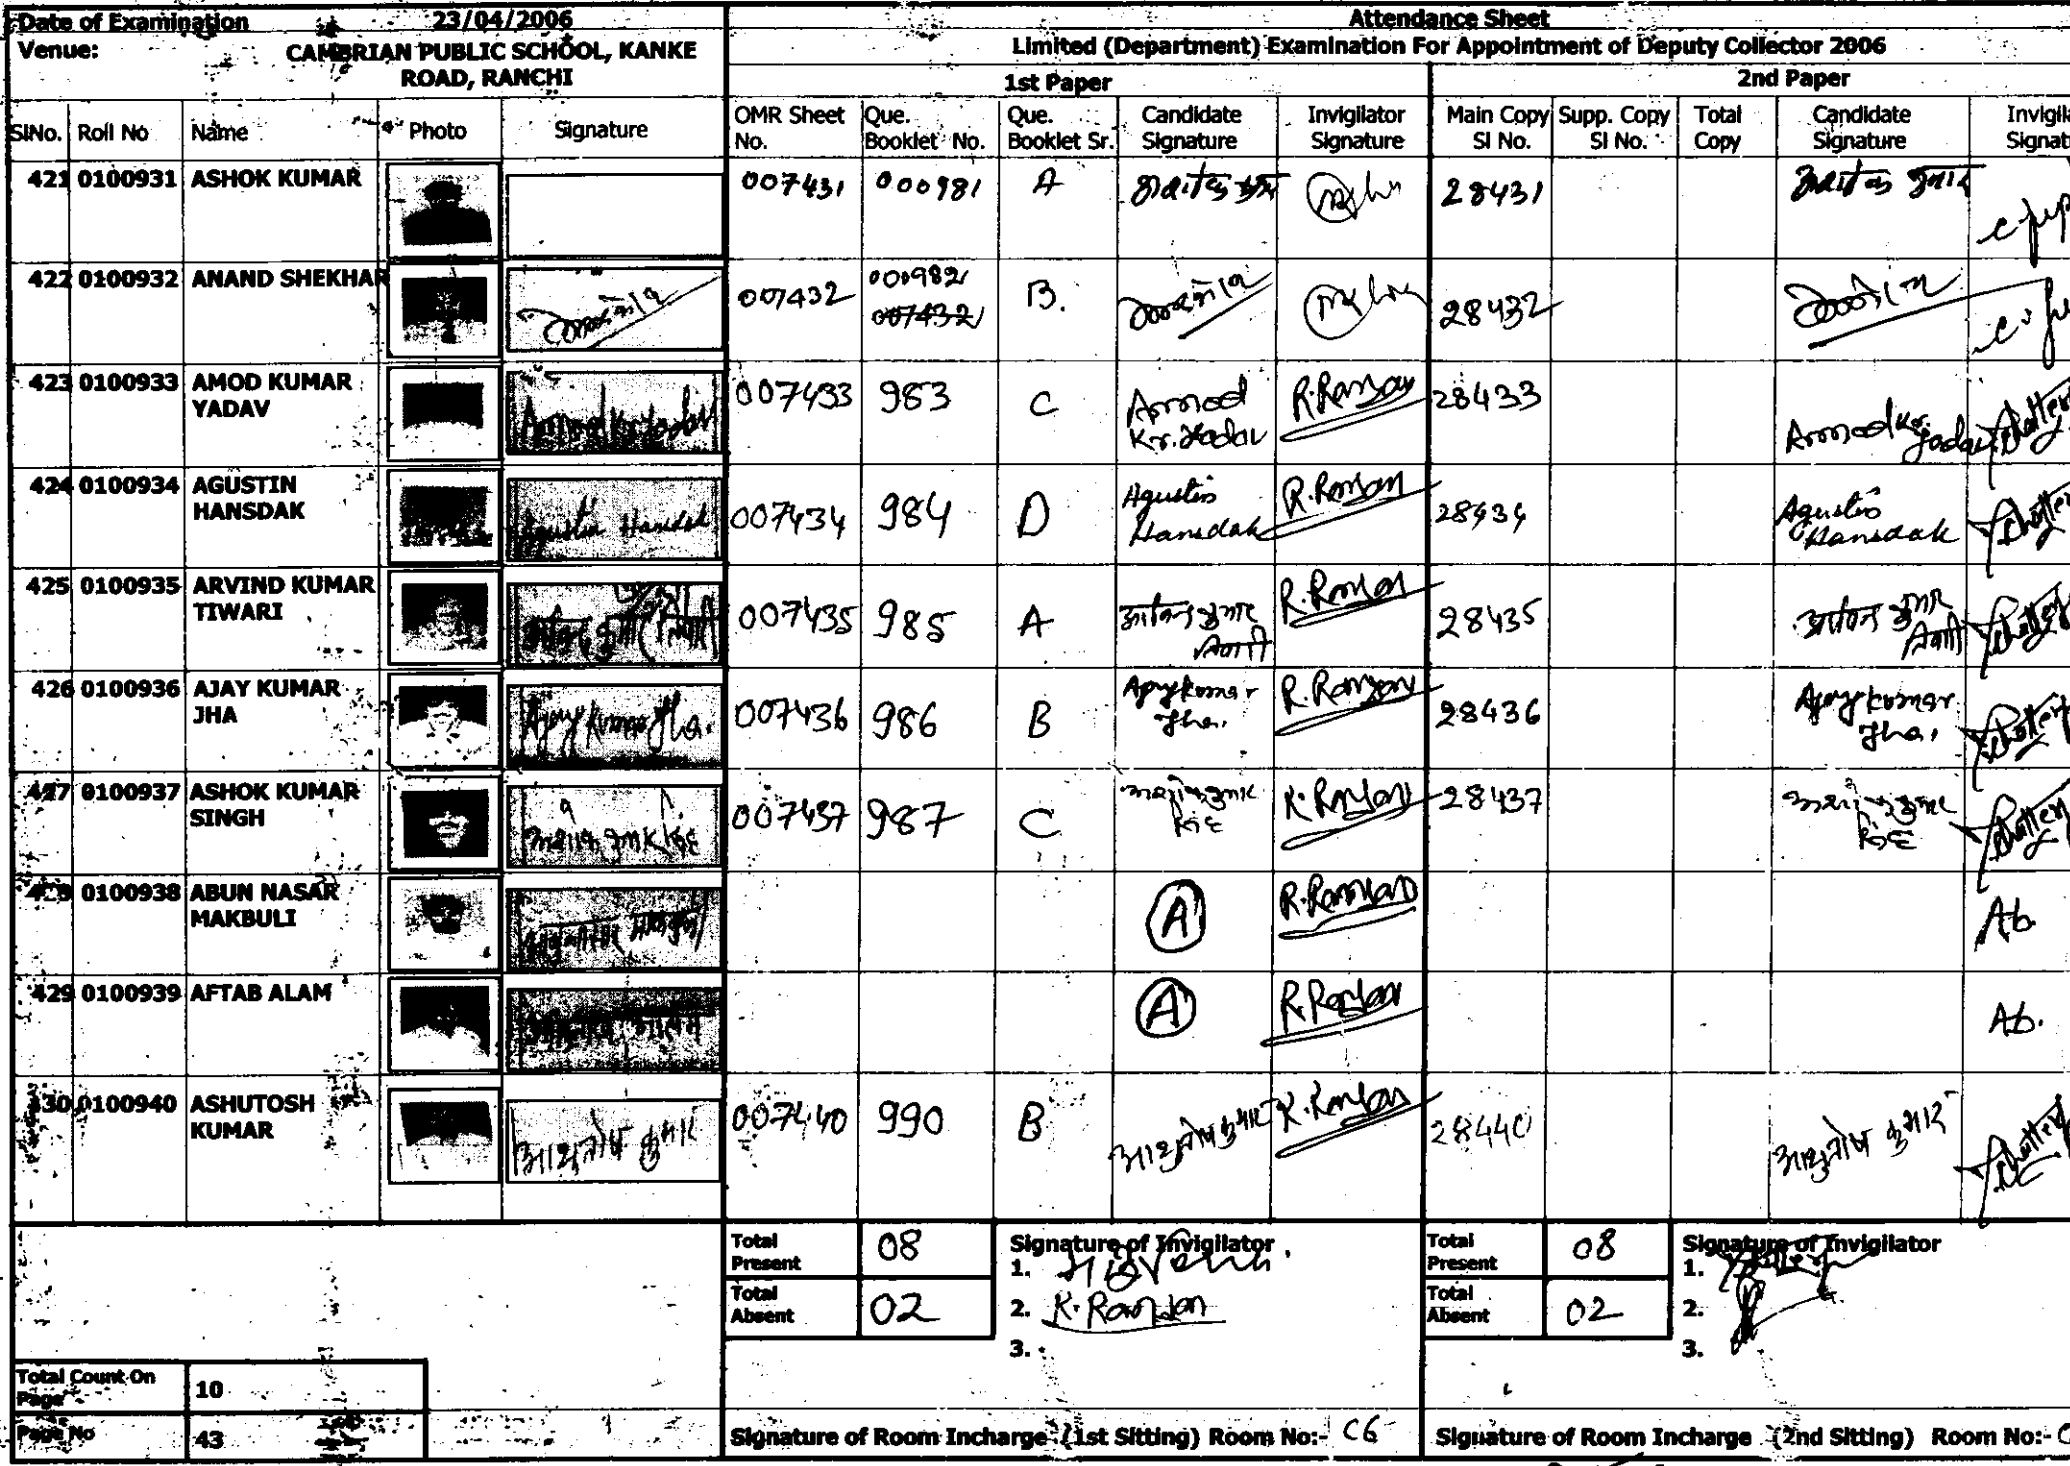 Date of Examination 23/04/2006
Venue: CAMBRIAN PUBLIC SCHOOL, KANKE
ROAD, RANCHI
Attendance Sheet
Limited (Department) Examination For Appointment of Deputy Collector 2006
1st Paper 2nd Paper
SlNo. Roll No Name Photo Signature OMR Sheet No. Que. Booklet No. Que. Booklet Sr. Candidate Signature Invigilator Signature Main Copy Sl No. Supp. Copy Sl No. Total Copy Candidate Signature
421 0100931 ASHOK KUMAR 007431 000981 A 28431
422 0100932 ANAND SHEKHAR 007432 000982 B. 28432
007432
423 0100933 AMOD KUMAR YADAV 007433 983 C Amod Kr. Yadav R. Ranjan 28433 Amod Kr. Yadav
424 0100934 AGUSTIN HANSDAK Agustin Hansdak 007434 984 D Agustin Hansdak R. Ranjan 28434 Agustin Hansdak
425 0100935 ARVIND KUMAR TIWARI 007435 985 A R. Ranjan 28435
426 0100936 AJAY KUMAR JHA Ajay Kumar Jha. 007436 986 B Ajay Kumar Jha. R. Ranjan 28436 Ajay Kumar Jha.
427 0100937 ASHOK KUMAR SINGH 007437 987 C R. Ranjan 28437
0100938 ABUN NASAR MAKBULI A R. Ranjan Ab.
429 0100939 AFTAB ALAM A R. Ranjan Ab.
30 0100940 ASHUTOSH KUMAR आशुतोष कुमार 007440 990 B आशुतोष कुमार R. Ranjan 28440 आशुतोष कुमार
Total Present 08 Signature of Invigilator Total Present 08 Signature of Invigilator
1. 1.
Total Absent 02 2. R. Ranjan Total Absent 02 2.
3. 3.
Total Count On Page 10
Page No 43
Signature of Room Incharge (1st Sitting) Room No:- C6 Signature of Room Incharge (2nd Sitting) Room No:-